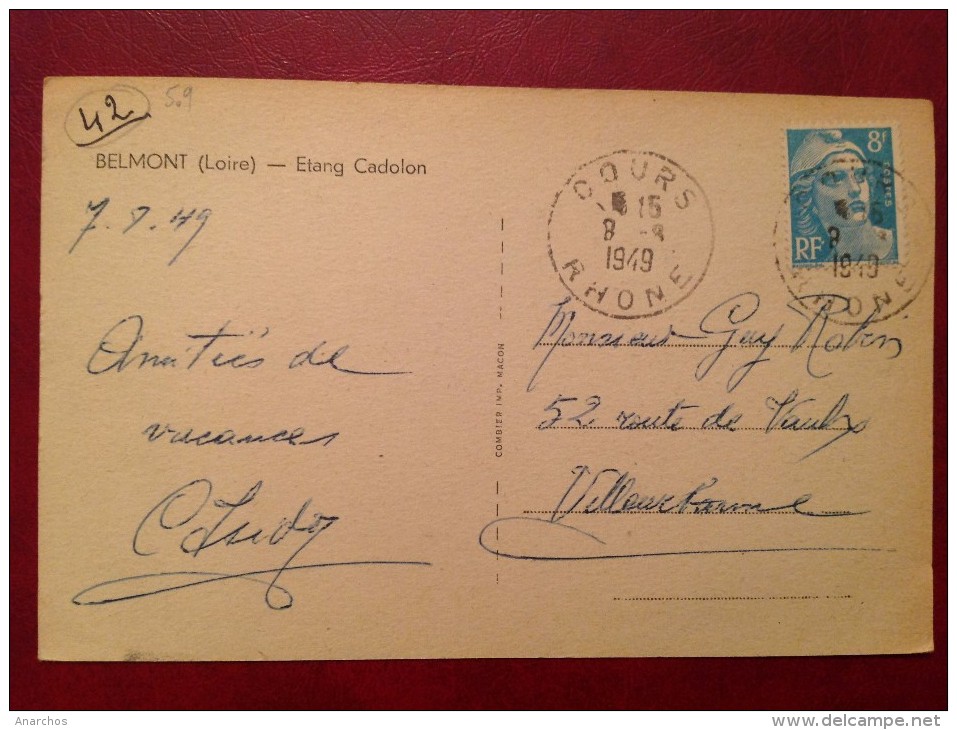 42
59
BELMONT (Loire) — Etang Cadolon
7.8.49
Amitiés de
vacances
COMBIER IMP. MACON
COURS
15
8 -8
1949
RHONE
8F
POSTES
RF
1949
RHONE
Monsieur Guy Robin
52 route de Vaulx
Villeurbanne
Anarchos
www.delcampe.net